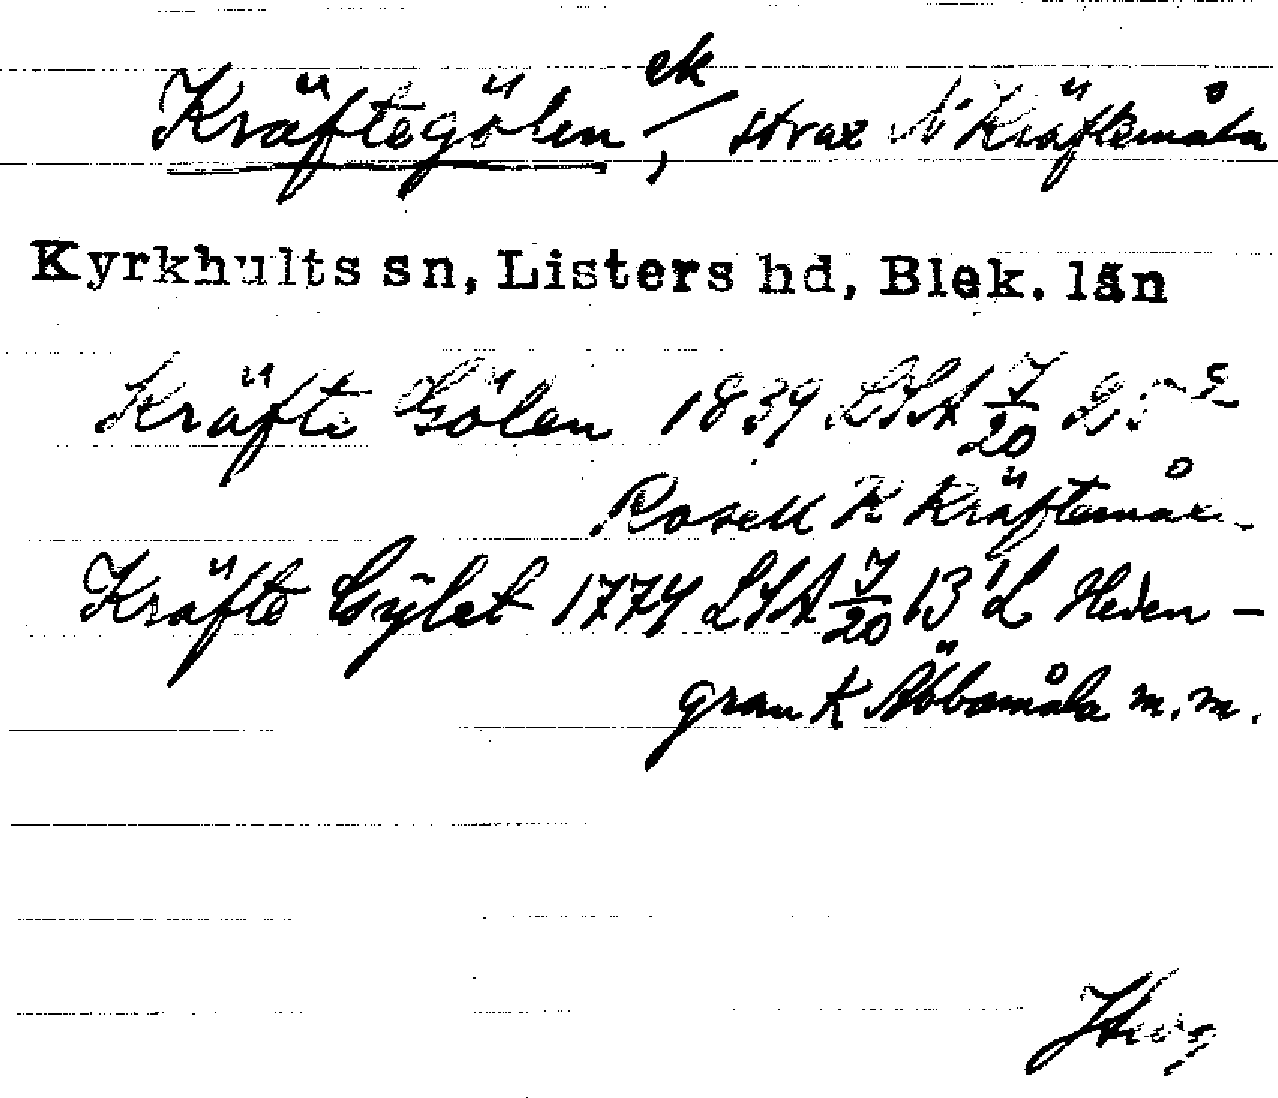 Kräftegölen ek, strax N Kräftemåla
Kyrkhults sn, Listers hd, Blek. län
Kräfte Gölen 1839 LSA 7/20
Rosell K Kräftemå
Kräfte Gÿlet 1774 LSA 7/20 13 L Heden-
gran K Abbamåla m.m.